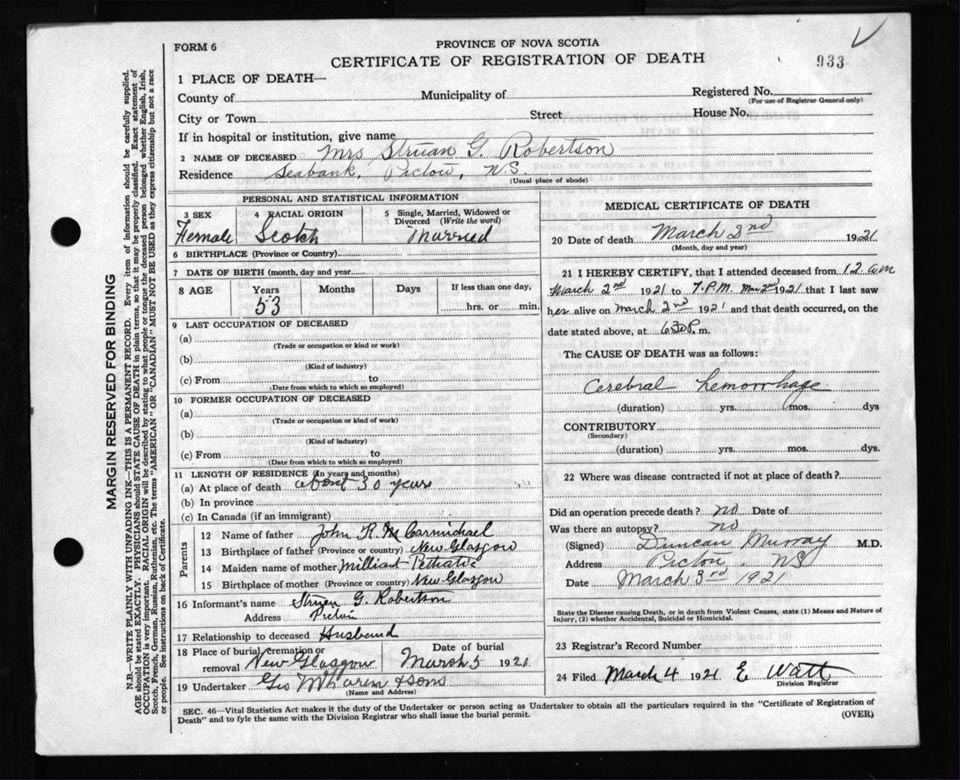 FORM 6
PROVINCE OF NOVA SCOTIA
CERTIFICATE OF REGISTRATION OF DEATH
933
1 PLACE OF DEATH—
County of Municipality of Registered No.
(For use of Registrar General only)
City or Town Street House No.
If in hospital or institution, give name
2 NAME OF DECEASED Mrs Struan G. Robertson
Residence Seabank, Pictou, N.S.
(Usual place of abode)
PERSONAL AND STATISTICAL INFORMATION
3 SEX 4 RACIAL ORIGIN 5 Single, Married, Widowed or Divorced (Write the word)
Female Scotch Married
6 BIRTHPLACE (Province or Country)
7 DATE OF BIRTH (month, day and year)
8 AGE Years Months Days If less than one day,
53 hrs. or min.
9 LAST OCCUPATION OF DECEASED
(a)
(Trade or occupation or kind or work)
(b)
(Kind of industry)
(c) From to
(Date from which to which so employed)
10 FORMER OCCUPATION OF DECEASED
(a)
(Trade or occupation or kind of work)
(b)
(Kind of industry)
(c) From to
(Date from which to which so employed)
11 LENGTH OF RESIDENCE (In years and months)
(a) At place of death about 30 years
(b) In province
(c) In Canada (if an immigrant)
Parents
12 Name of father John R. McCarmichael
13 Birthplace of father (Province or country) New Glasgow
14 Maiden name of mother
15 Birthplace of mother (Province or country) New Glasgow
16 Informant's name Struan G. Robertson
Address Pictou
17 Relationship to deceased Husband
18 Place of burial, cremation or removal New Glasgow Date of burial March 5 192
19 Undertaker Geo & Sons
(Name and Address)
MEDICAL CERTIFICATE OF DEATH
20 Date of death March 2nd 1921
(Month, day and year)
21 I HEREBY CERTIFY, that I attended deceased from 12 a.m
March 2nd 1921 to 7 P.M. Mar 2nd 1921 that I last saw
her alive on March 2nd 1921 and that death occurred, on the
date stated above, at m.
The CAUSE OF DEATH was as follows:
Cerebral hemorrhage
(duration) yrs. mos. dys
CONTRIBUTORY
(Secondary)
(duration) yrs. mos. dys.
22 Where was disease contracted if not at place of death?
Did an operation precede death? no Date of
Was there an autopsy? no
(Signed) Duncan Murray M.D.
Address Pictou, NS
Date March 3rd 1921
State the Disease causing Death, or in death from Violent Causes, state (1) Means and Nature of
Injury, (2) whether Accidental, Suicidal or Homicidal.
23 Registrar's Record Number
24 Filed March 4 1921 E Watt
Division Registrar
SEC. 46—Vital Statistics Act makes it the duty of the Undertaker or person acting as Undertaker to obtain all the particulars required in the "Certificate of Registration of
Death" and to fyle the same with the Division Registrar who shall issue the burial permit. (OVER)
MARGIN RESERVED FOR BINDING
N.B.—WRITE PLAINLY WITH UNFADING INK—THIS IS A PERMANENT RECORD. Every item of information should be carefully supplied.
AGE should be stated EXACTLY. PHYSICIANS should STATE CAUSE OF DEATH in plain terms, so that it may be properly classified. Exact statement of
OCCUPATION is very important. RACIAL ORIGIN will be described by stating to what people or tongue the deceased person belonged whether English, Irish,
Scotch, French, German, Russian, Ruthenian, etc. The terms "AMERICAN" OR "CANADIAN" MUST NOT BE USED as they express citizenship but not a race
or people. See instructions on back of Certificate.